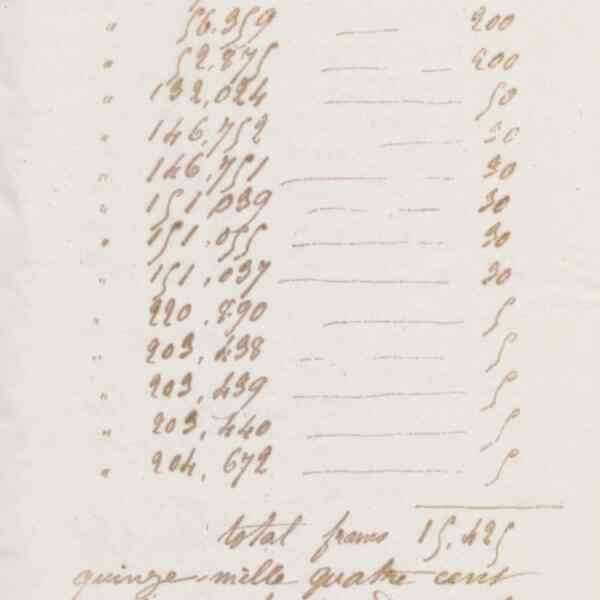 " 56,359 — 200
" 52,875 — — 200
" 132,024 — 50
" 146,752 — 30
" 146,751 — 30
" 151,039 — — 30
" 151,055 — — 30
" 151,037 — 30
" 220,890 — 5
" 203,438 — — 5
" 203,439 — 5
" 203,440 — 5
" 204,672 — 5
total francs 15,425
quinze mille quatre cent